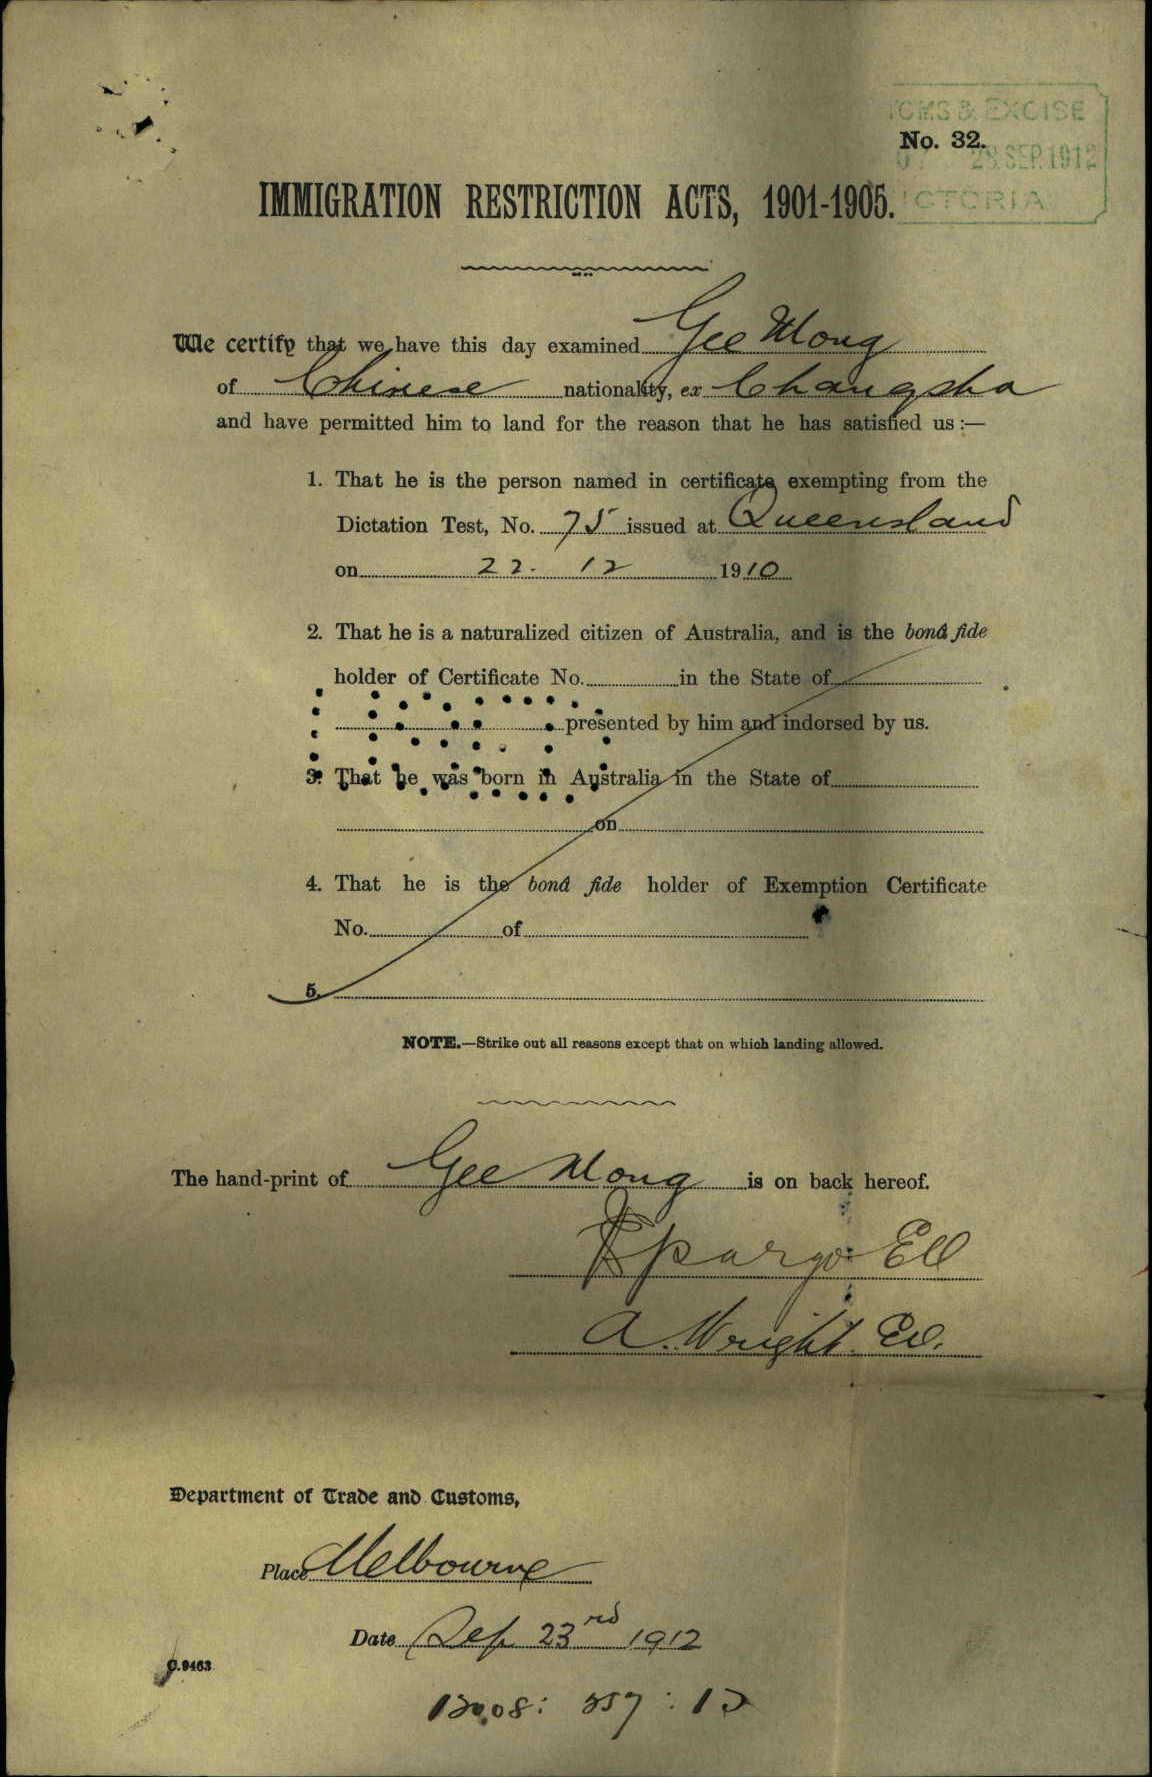 OMS & EXCISE
No. 32.
23 SEP. 1912
CTORIA
IMMIGRATION RESTRICTION ACTS, 1901-1905.
We certify that we have this day examined Gee Wong
of Chinese nationality, ex Changsha
and have permitted him to land for the reason that he has satisfied us :—
1. That he is the person named in certificate exempting from the
Dictation Test, No. 75 issued at Queensland
on 22. 12 1910
2. That he is a naturalized citizen of Australia, and is the bonâ fide
holder of Certificate No. in the State of
presented by him and indorsed by us.
3. That he was born in Australia in the State of
on
4. That he is the bonâ fide holder of Exemption Certificate
No. of
5.
NOTE.—Strike out all reasons except that on which landing allowed.
The hand-print of Gee Wong is on back hereof.
Spargo EO
A. Wright. EO.
Department of Trade and Customs,
Place Melbourne
Date Sep 23rd 1912
C.9463